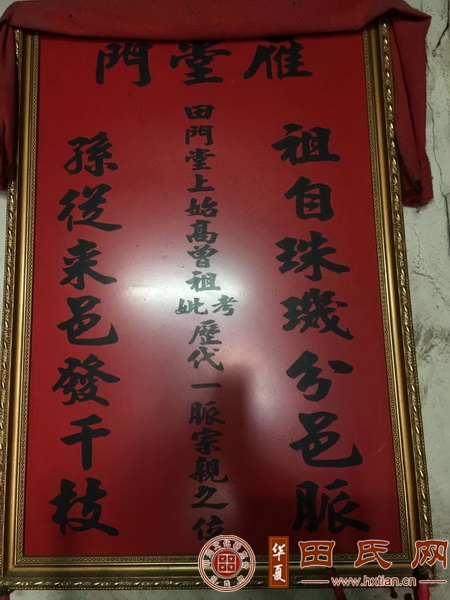 雁堂門
祖自珠璣分邑脈
田門堂上始高曾祖考妣歷代一脈宗親之位
孫從来邑發千枝
华夏 田氏网
www.hxtian.cn